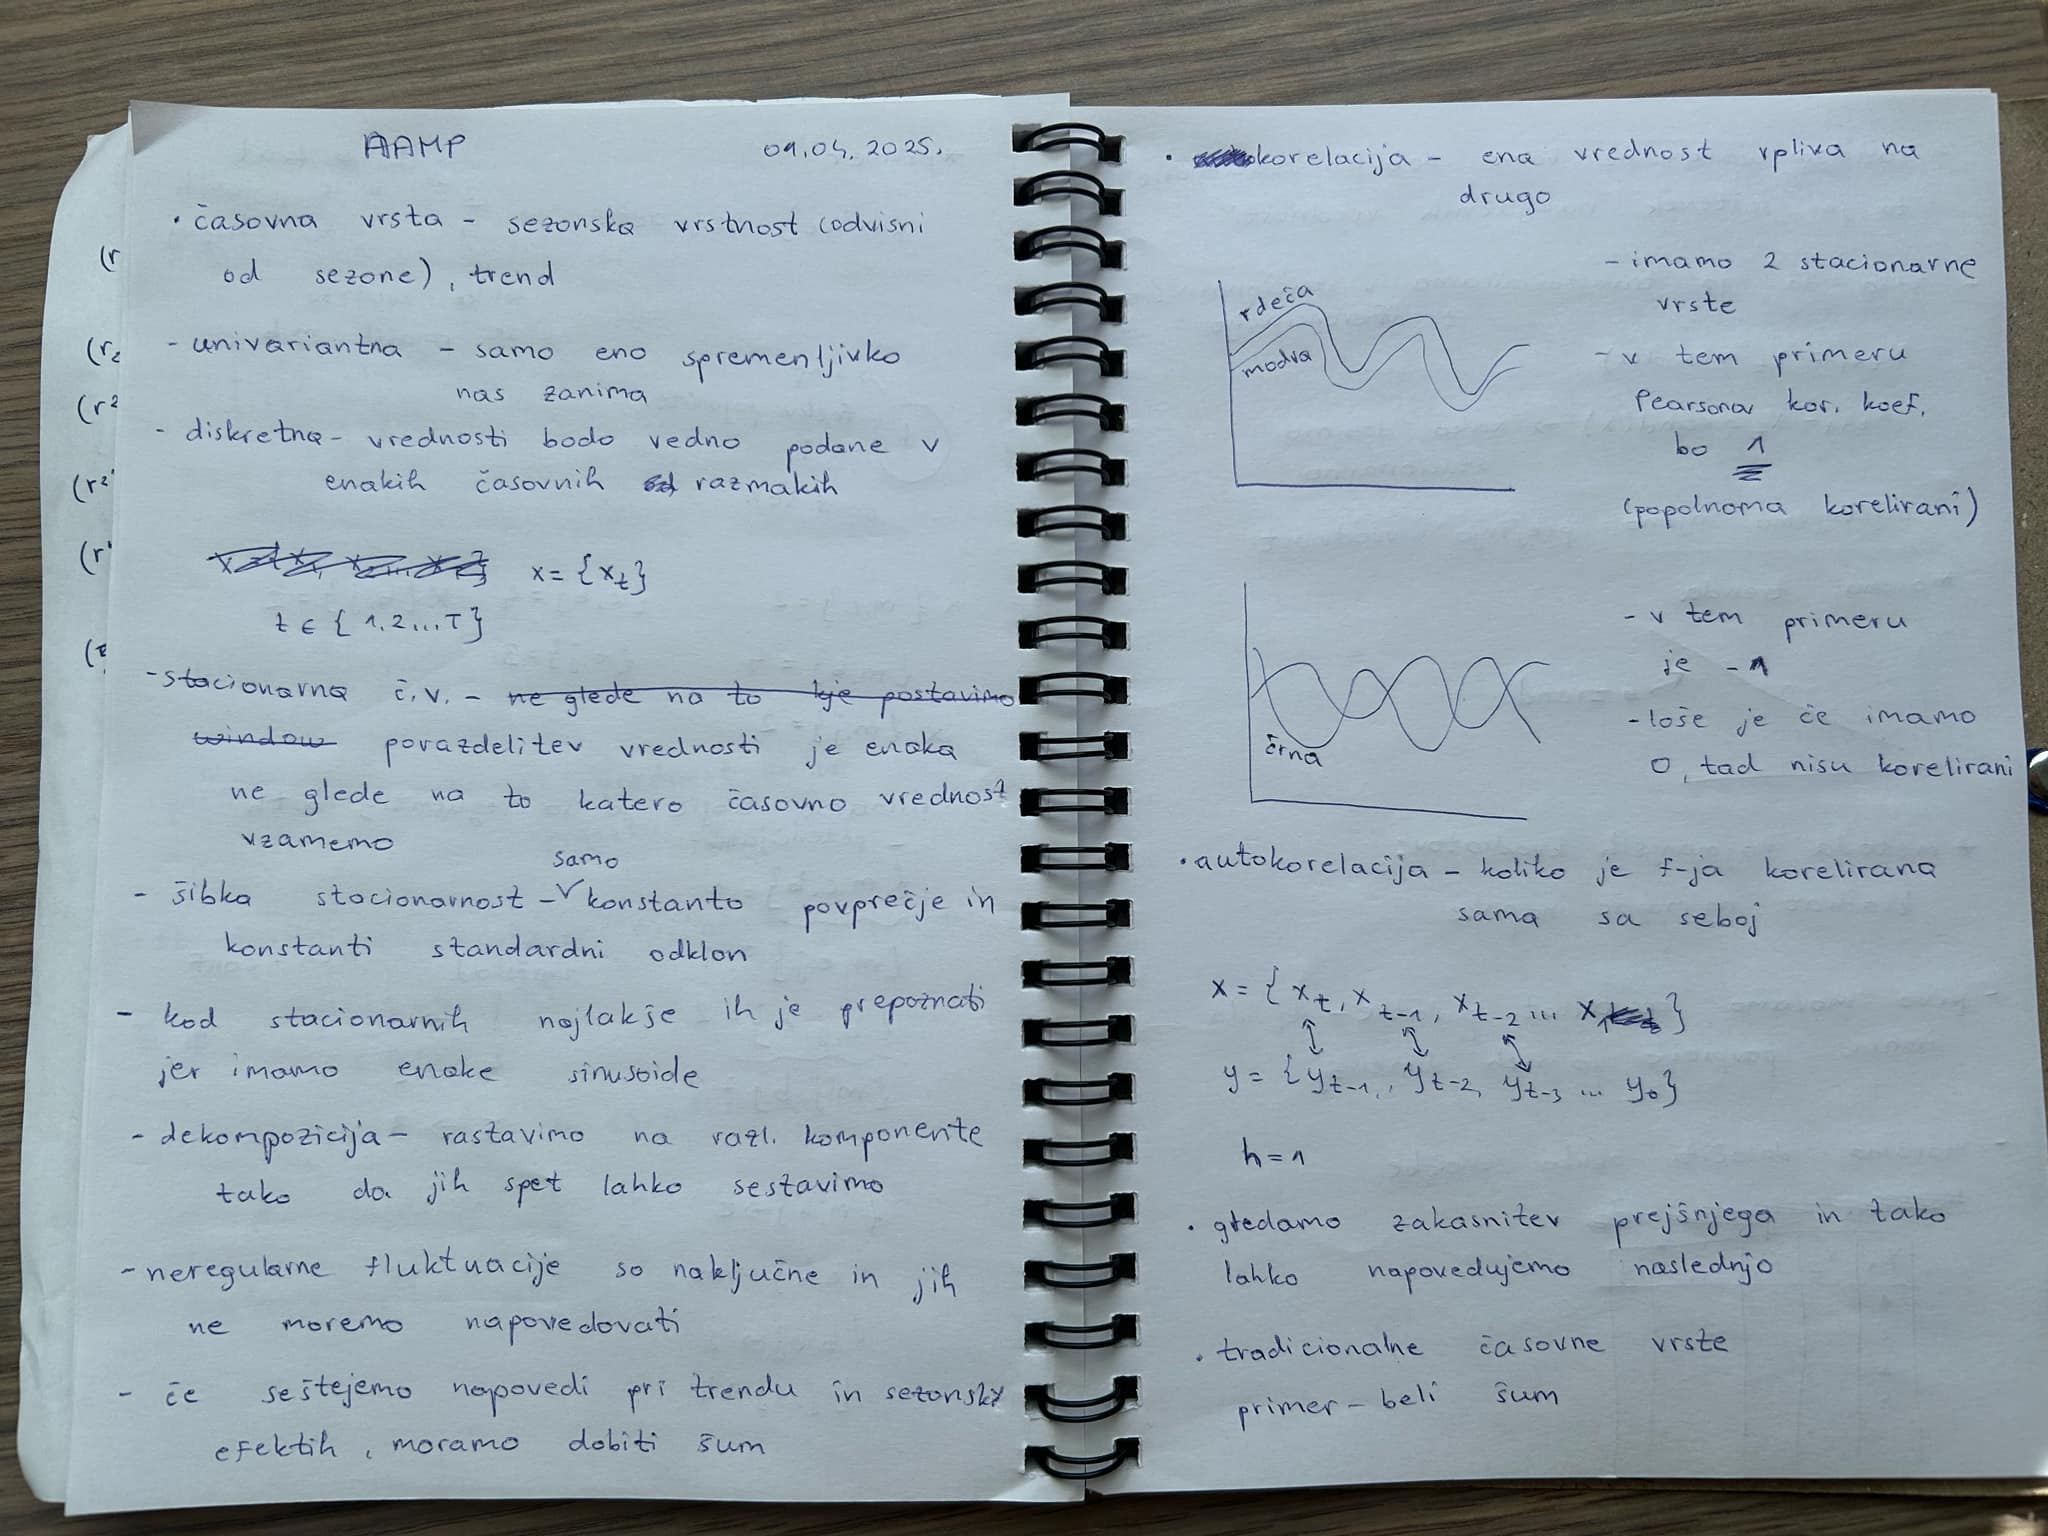 AAMP 09.04.2025.
• časovna vrsta - sezonska vrstnost (odvisni
od sezone), trend
- univariantna - samo eno spremenljivko
nas zanima
- diskretna - vrednosti bodo vedno podane v
enakih časovnih razmakih
x = {x_t}
t ∈ {1,2...T}
- stacionarna č.v. - ne glede na to kje postavimo
window povazdelitev vrednosti je enaka
ne glede na to katero časovno vrednost
vzamemo
samo
- šibka stacionarnost - konstanto povprečje in
konstanti standardni odklon
- kod stacionarnih najlakše ih je prepoznati
jer imamo enake sinusoide
- dekompozicija - rastavimo na razl. komponente
tako da jih spet lahko sestavimo
- neregularne fluktuacije so naključne in jih
ne moremo napovedovati
- če seštejemo napovedi pri trendu in sezonskx
efektih, moramo dobiti šum
• korelacija - ena vrednost vpliva na
drugo
rdeča
modva
- imamo 2 stacionarne
vrste
- v tem primeru
Pearsonov kor. koef.
bo 1
(popolnoma korelirani)
črna
- v tem primeru
je -1
- loše je če imamo
0, tad nisu korelirani
• autokorelacija - koliko je f-ja korelirana
sama sa seboj
x = {x_t, x_t-1, x_t-2 ... x_1}
y = {y_t-1, y_t-2, y_t-3 ... y_0}
h=1
• gledamo zakasnitev prejšnjega in tako
lahko napovedujemo naslednjo
• tradicionalne časovne vrste
primer - beli šum